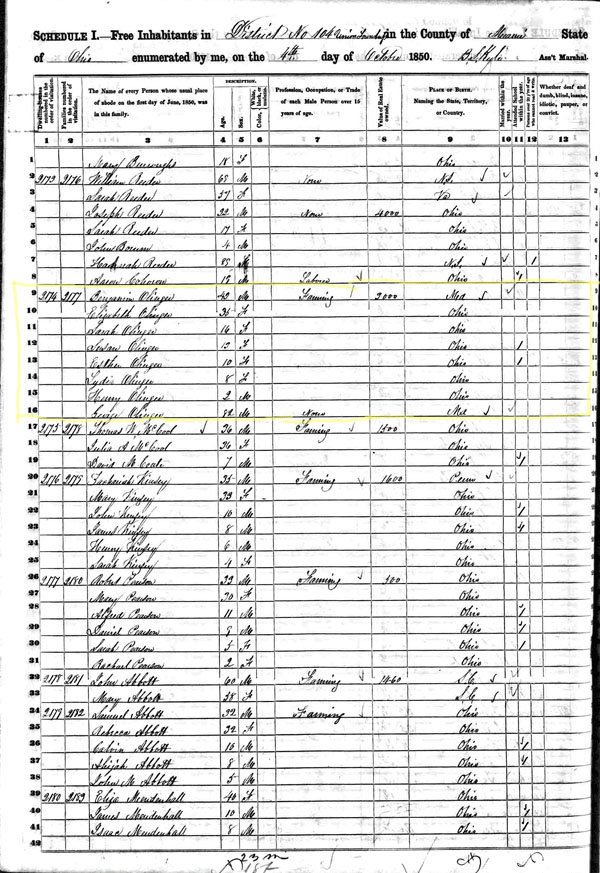 SCHEDULE I.—Free Inhabitants in District No 104 Union Township in the County of Miami State
of Ohio enumerated by me, on the 4th day of October 1850. Ass't Marshal.
Dwelling-houses numbered in the order of visitation.
Families numbered in the order of visitation.
The Name of every Person whose usual place of abode on the first day of June, 1850, was in this family.
DESCRIPTION.
Age.
Sex.
White, black, or mulatto. Color,
Profession, Occupation, or Trade of each Male Person over 15 years of age.
Value of Real Estate owned.
PLACE OF BIRTH. Naming the State, Territory, or Country.
Married within the year.
Attended School within the year.
Whether deaf and dumb, blind, insane, idiotic, pauper, or convict.
1 2 3 4 5 6 7 8 9 10 11 12 13
1 Mary Burroughs 18 F Ohio
2 2173 2176 William Reeder 68 M None
3 Sarah Reeder 57 F Va
4 Joseph Reeder 22 M None 4000 Ohio
5 Sarah Reeder 17 F Ohio
6 John 4 M Ohio
7 Hannah Reeder 1
8 Aaron 18 M Laborer Ohio 1
9 2174 2177 Benjamin Olinger 42 M Farming 2000 Med
10 Elizabeth Olinger 35 F Ohio
11 Sarah Olinger 16 F Ohio
12 Susan Olinger 13 F Ohio 1
13 Esther Olinger 10 F Ohio 1
14 Lydia Olinger 8 F Ohio
15 Henry Olinger 2 M Ohio
16 George Olinger 82 M None Med
17 2175 2178 Thomas W. McCool 36 M Farming 1500 Ohio
18 Julia A McCool 36 F Ohio
19 David M Coate 7 M Ohio 1
20 2176 2179 Zachariah Kinsey 35 M Farming 1600 Penn
21 Mary Kinsey 33 F Ohio
22 John Kinsey 10 M Ohio 1
23 James Kinsey 8 M Ohio 1
24 Henry Kinsey 6 M Ohio
25 Sarah Kinsey 4 F Ohio
26 2177 2180 Robert Pearson 33 M Farming 500 Ohio
27 Mary Pearson 30 F Ohio
28 Alfred Pearson 11 M Ohio 1
29 Daniel Pearson 8 M Ohio 1
30 Sarah Pearson 5 F Ohio 1
31 Rachael Pearson 2 F Ohio
32 2178 2181 John Abbott 60 M Farming 1460 S.C.
33 Mary Abbott 58 F S.C.
34 2179 2182 Samuel Abbott 32 M Farming Ohio
35 Rebecca Abbott 32 F Ohio
36 Calvin Abbott 10 M Ohio 1
37 Abijah Abbott 8 M Ohio 1
38 John M Abbott 5 M Ohio
39 2180 2183 Eliza Mendenhall 40 F Ohio
40 James Mendenhall 10 M Ohio 1
41 Isaac Mendenhall 8 M Ohio 1
42
23 m
18 f